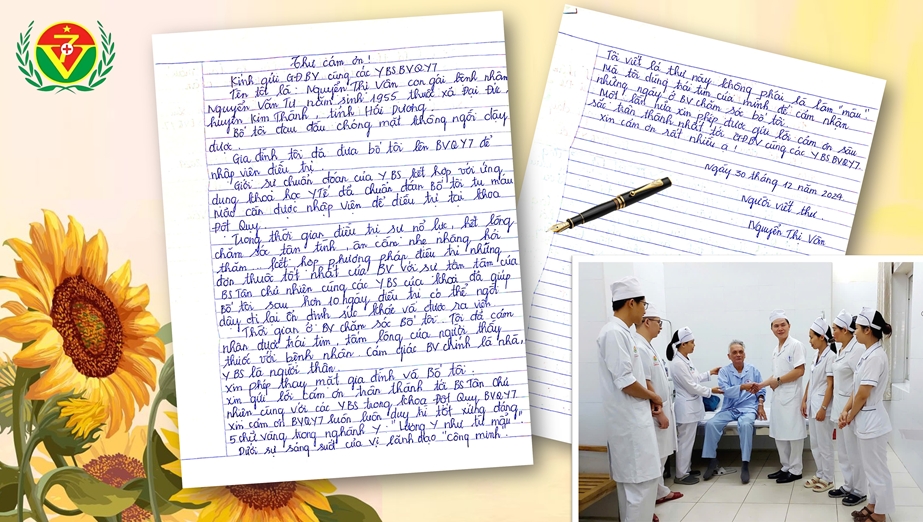 Thư cảm ơn!
Kính gửi GĐBV cùng các YBS.BVQY7
Tên tôi là: Nguyễn Thị Vân con gái bệnh nhân
Nguyễn Văn Tư năm sinh 1955 thuộc xã Đại Đức,
huyện Kim Thành, tỉnh Hải Dương.
Bố tôi đau đầu chóng mặt không ngồi dậy
được.
Gia đình tôi đã đưa bố tôi lên BVQY7 để
nhập viện điều trị
Giời sự chuẩn đoán của YBS kết hợp với ứng
dụng khoa học YTế đã chuẩn đoán Bố tôi tụ máu
Máu cần được nhập viện để điều trị tại khoa
Đột Quỵ.
Trong thời gian điều trị sự nỗ lực, hết lòng
chăm sóc tận tình, ân cần nhẹ nhàng hỏi
thăm... kết hợp phương pháp điều trị những
đơn thuốc tốt nhất của BV với sự tận tâm của
BS Tân chủ nhiệm cùng các YBS của khoa đã giúp
Bố tôi sau hơn 10 ngày điều trị có thể ngồi
dậy đi lại ổn định sức khỏe và được ra viện.
Thời gian ở BV chăm sóc Bố tôi. Tôi đã cảm
nhận được trái tim, tấm lòng của người thầy
thuốc với bệnh nhân. Cảm giác BV chính là nhà,
YBS là người thân.
Xin phép thay mặt gia đình và Bố tôi.
xin gửi lời cảm ơn trân thành tới BS Tân chủ
nhiệm cùng với các YBS trong khoa Đột Quỵ BVQY7
xin cảm ơn BVQY7 luôn luôn duy trì tốt xứng đáng
5 chữ vàng trong nghành Y "Lương Y như từ mẫu".
Dưới sự sáng suốt của vị lãnh đạo "công minh".
Tôi viết lá thư này không phải là làm "màu".
Mà tôi dùng trái tim của mình để cảm nhận
những ngày ở BV chăm sóc bố tôi.
Một lần nữa xin phép được gửi lời cảm ơn sâu
sắc trân thành nhất tới GĐBV cùng các YBS.BVQY7.
xin cảm ơn rất nhiều ạ!
Ngày 30 tháng 12 năm 2024.
Người viết thư
Nguyễn Thị Vân